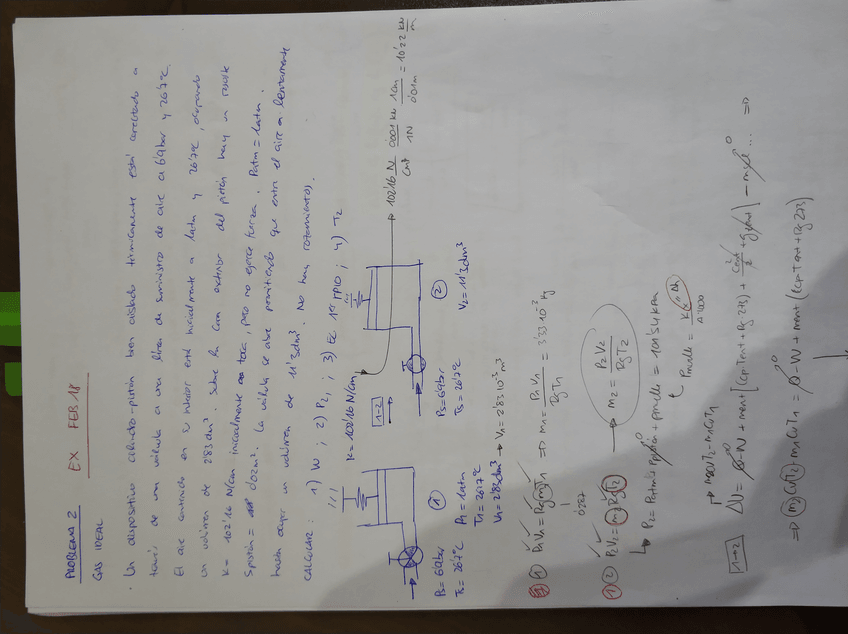 PROBLEMA 2 EX FEB 18
GAS IDEAL
· Un dispositivo cilindro-pistón bien aislado térmicamente está conectado a
través de una válvula a una línea de suministro de aire a 6'9bar y 26'7ºC.
El aire contenido en su interior está inicialmente a 1atm y 26'7ºC, ocupando
un volumen de 2'83dm³. Sobre la cara exterior del pistón hay un resorte
K = 102'16 N/cm inicialmente toca, pero no ejerce fuerza. Patm = 1atm.
Spistón = 0'02m². La válvula se abre permitiendo que entre el aire lentamente
hasta ocupar un volumen de 11'3dm³. No hay rozamientos).
CALCULAR: 1) W ; 2) P2 ; 3) Ec 1er PPIO ; 4) T2
K = 102'16 N/cm
1-2
102'16 N/cm 0'001 KN/1N 1cm/0'01m = 10'22 KN/m
1
2
Ps = 6'9bar P1 = 1atm
Ts = 26'7ºC T1 = 26'7ºC
V1 = 2'83dm³ → V1 = 2'83·10⁻³ m³
Ps = 6'9bar
Ts = 26'7ºC V2 = 11'3dm³
1 P1V1 = Rg m1 T1 => m1 = P1V1/RgT1 = 3'33·10⁻³ kg
0'287
1 2 P2V2 = m2 Rg T2 → m2 = P2V2/RgT2
P2 = Patm + Ppistón + Pmuelle = KPa
0
Pmuelle = K·Δh/A
m2CvT2 - m1CvT1
1→2 ΔU = Q - W + ment [(CpTent + Rg·273) + Cent²/2 + gzent] - ms ... =>
0
=> m2CvT2 - m1CvT1 = Q - W + ment (CpTent + Rg·273)
0